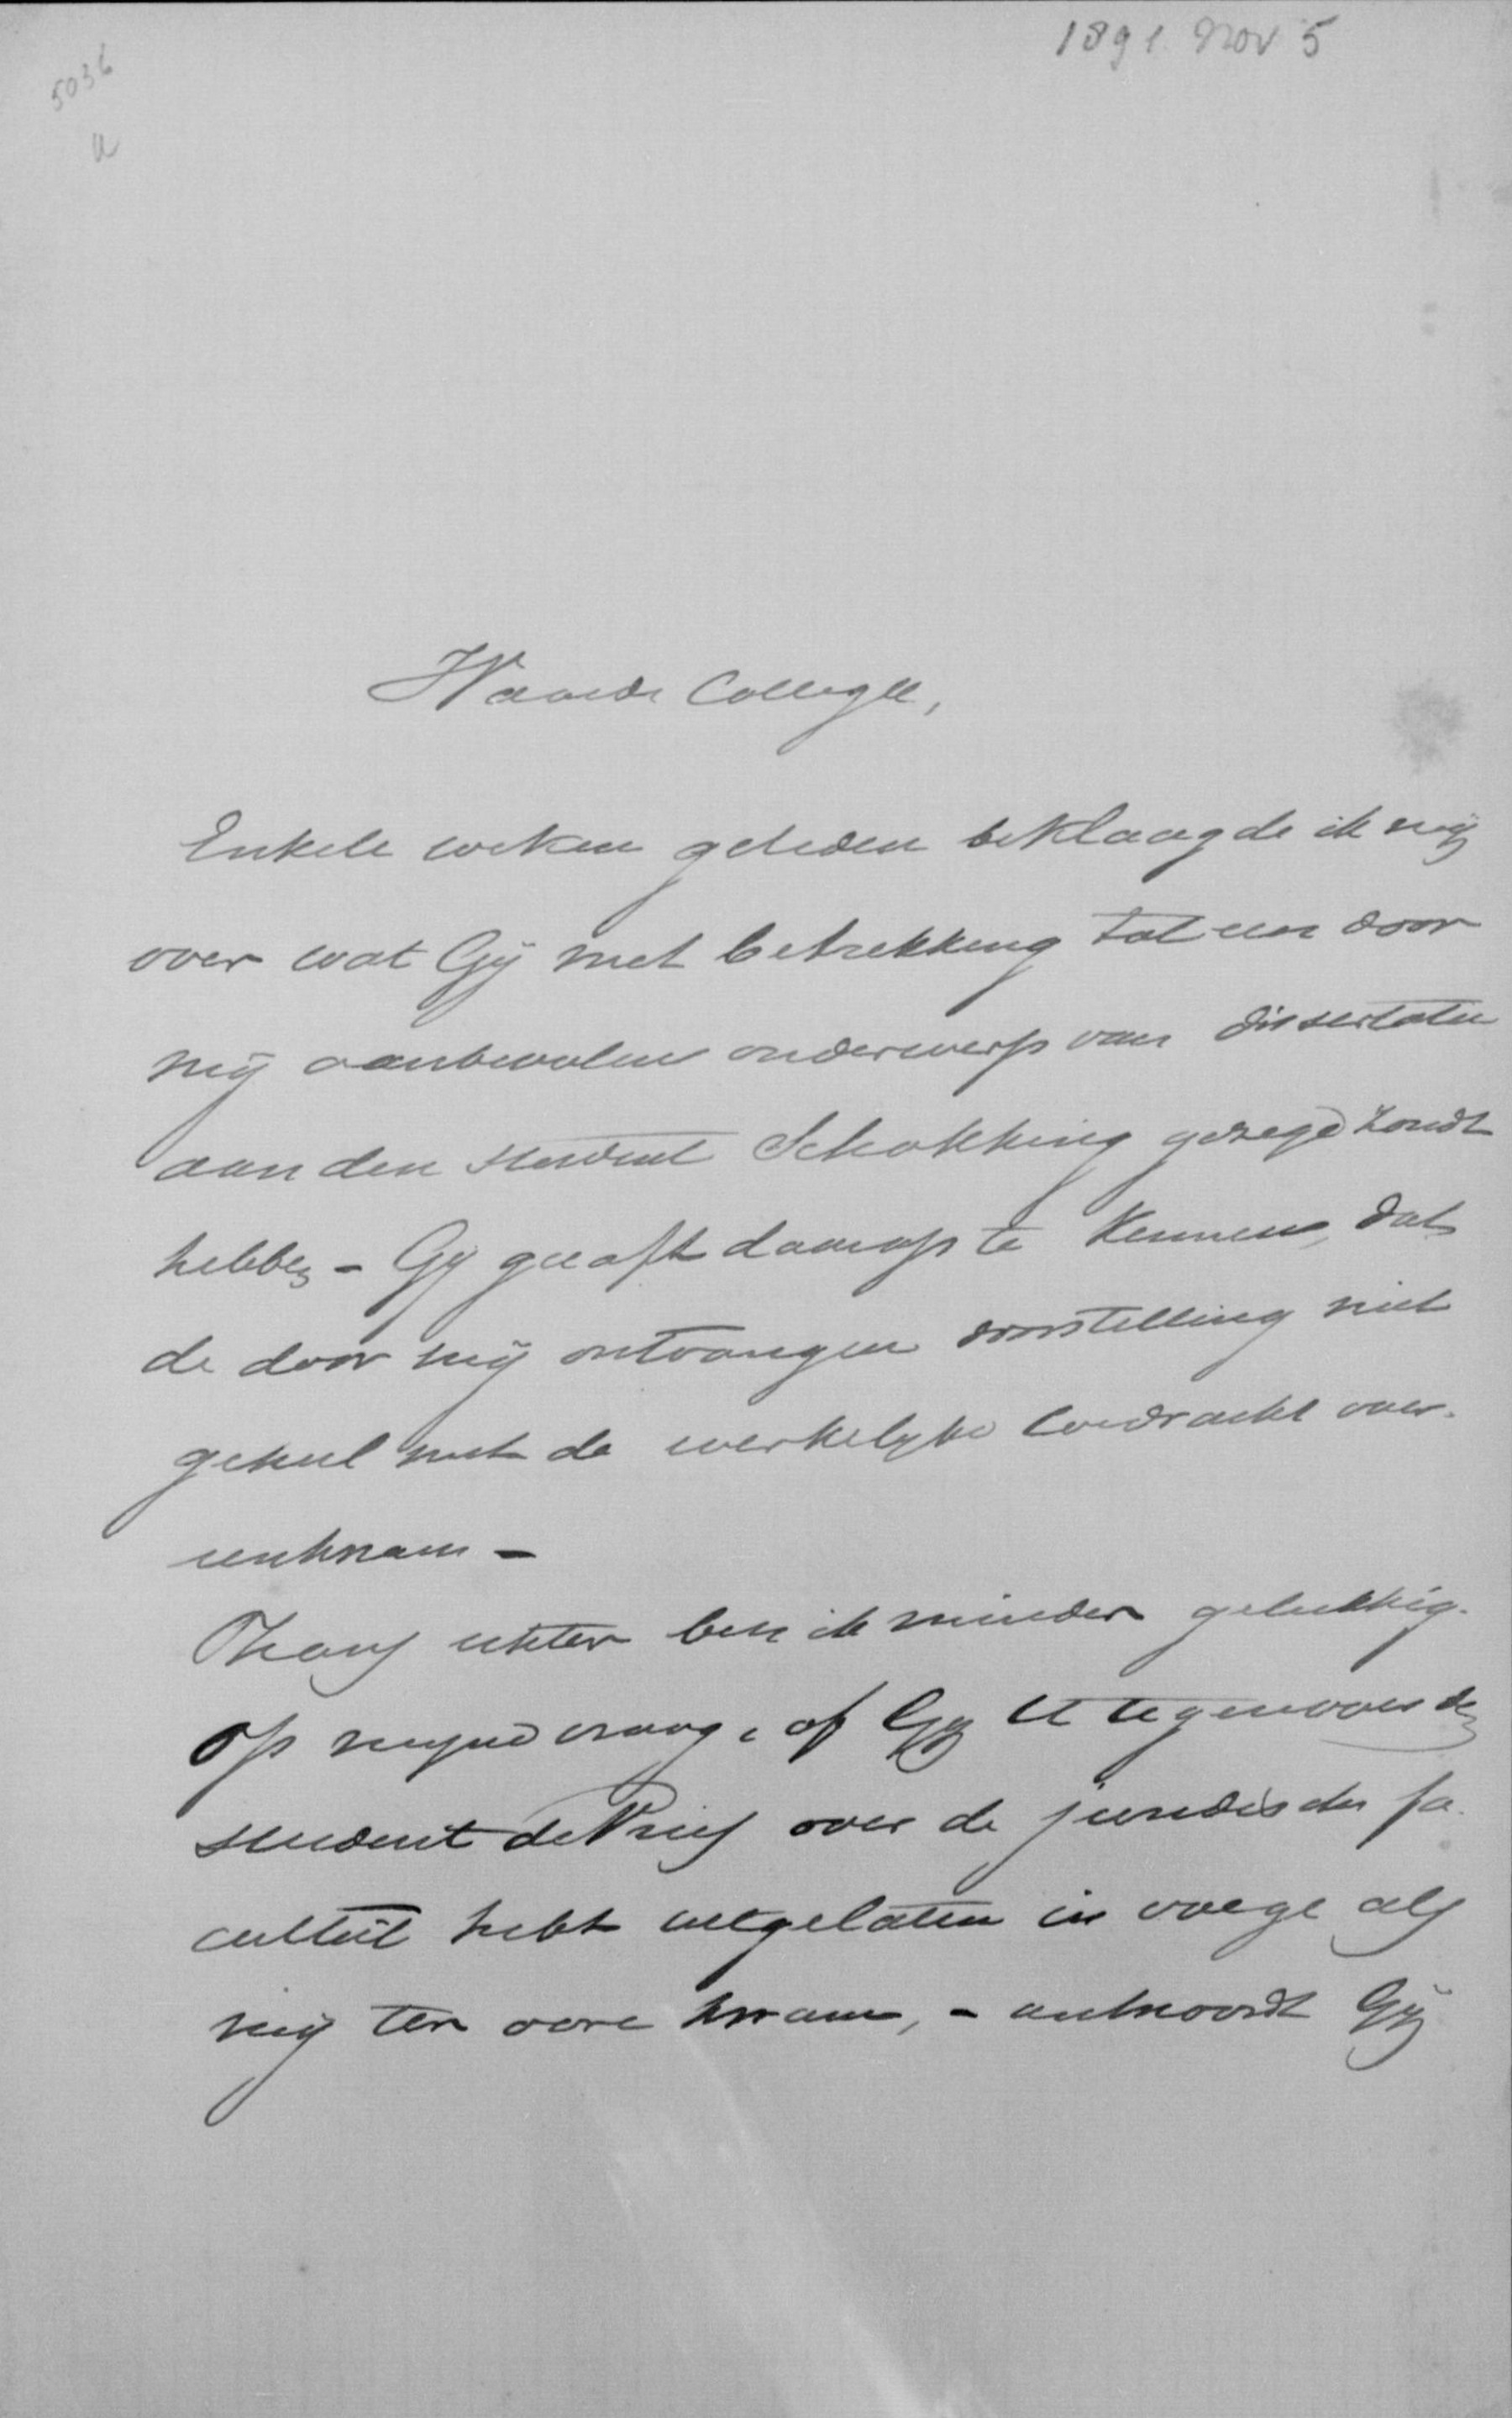 1891 Nov 5
5036
a
Waarde Collega,
Enkele weken geleden beklaagde ik mij
over wat Gij met betrekking tot een door
mij aanbevolen onderwerp van dissertatie
aan den student Schokking gezegd zoudt
hebben - Gij gaaft daarop te kennen, dat
de door mij ontvangen voorstelling niet
geheel met de werkelijke toedracht over-
eenkwam -
Thans echter ben ik minder gelukkig.
Op mijne vraag, of Gij U tegenover den
student de Vries over de juridische fa-
culteit hebt uitgelaten in voege als
mij ter oore kwam, - antwoordt Gij